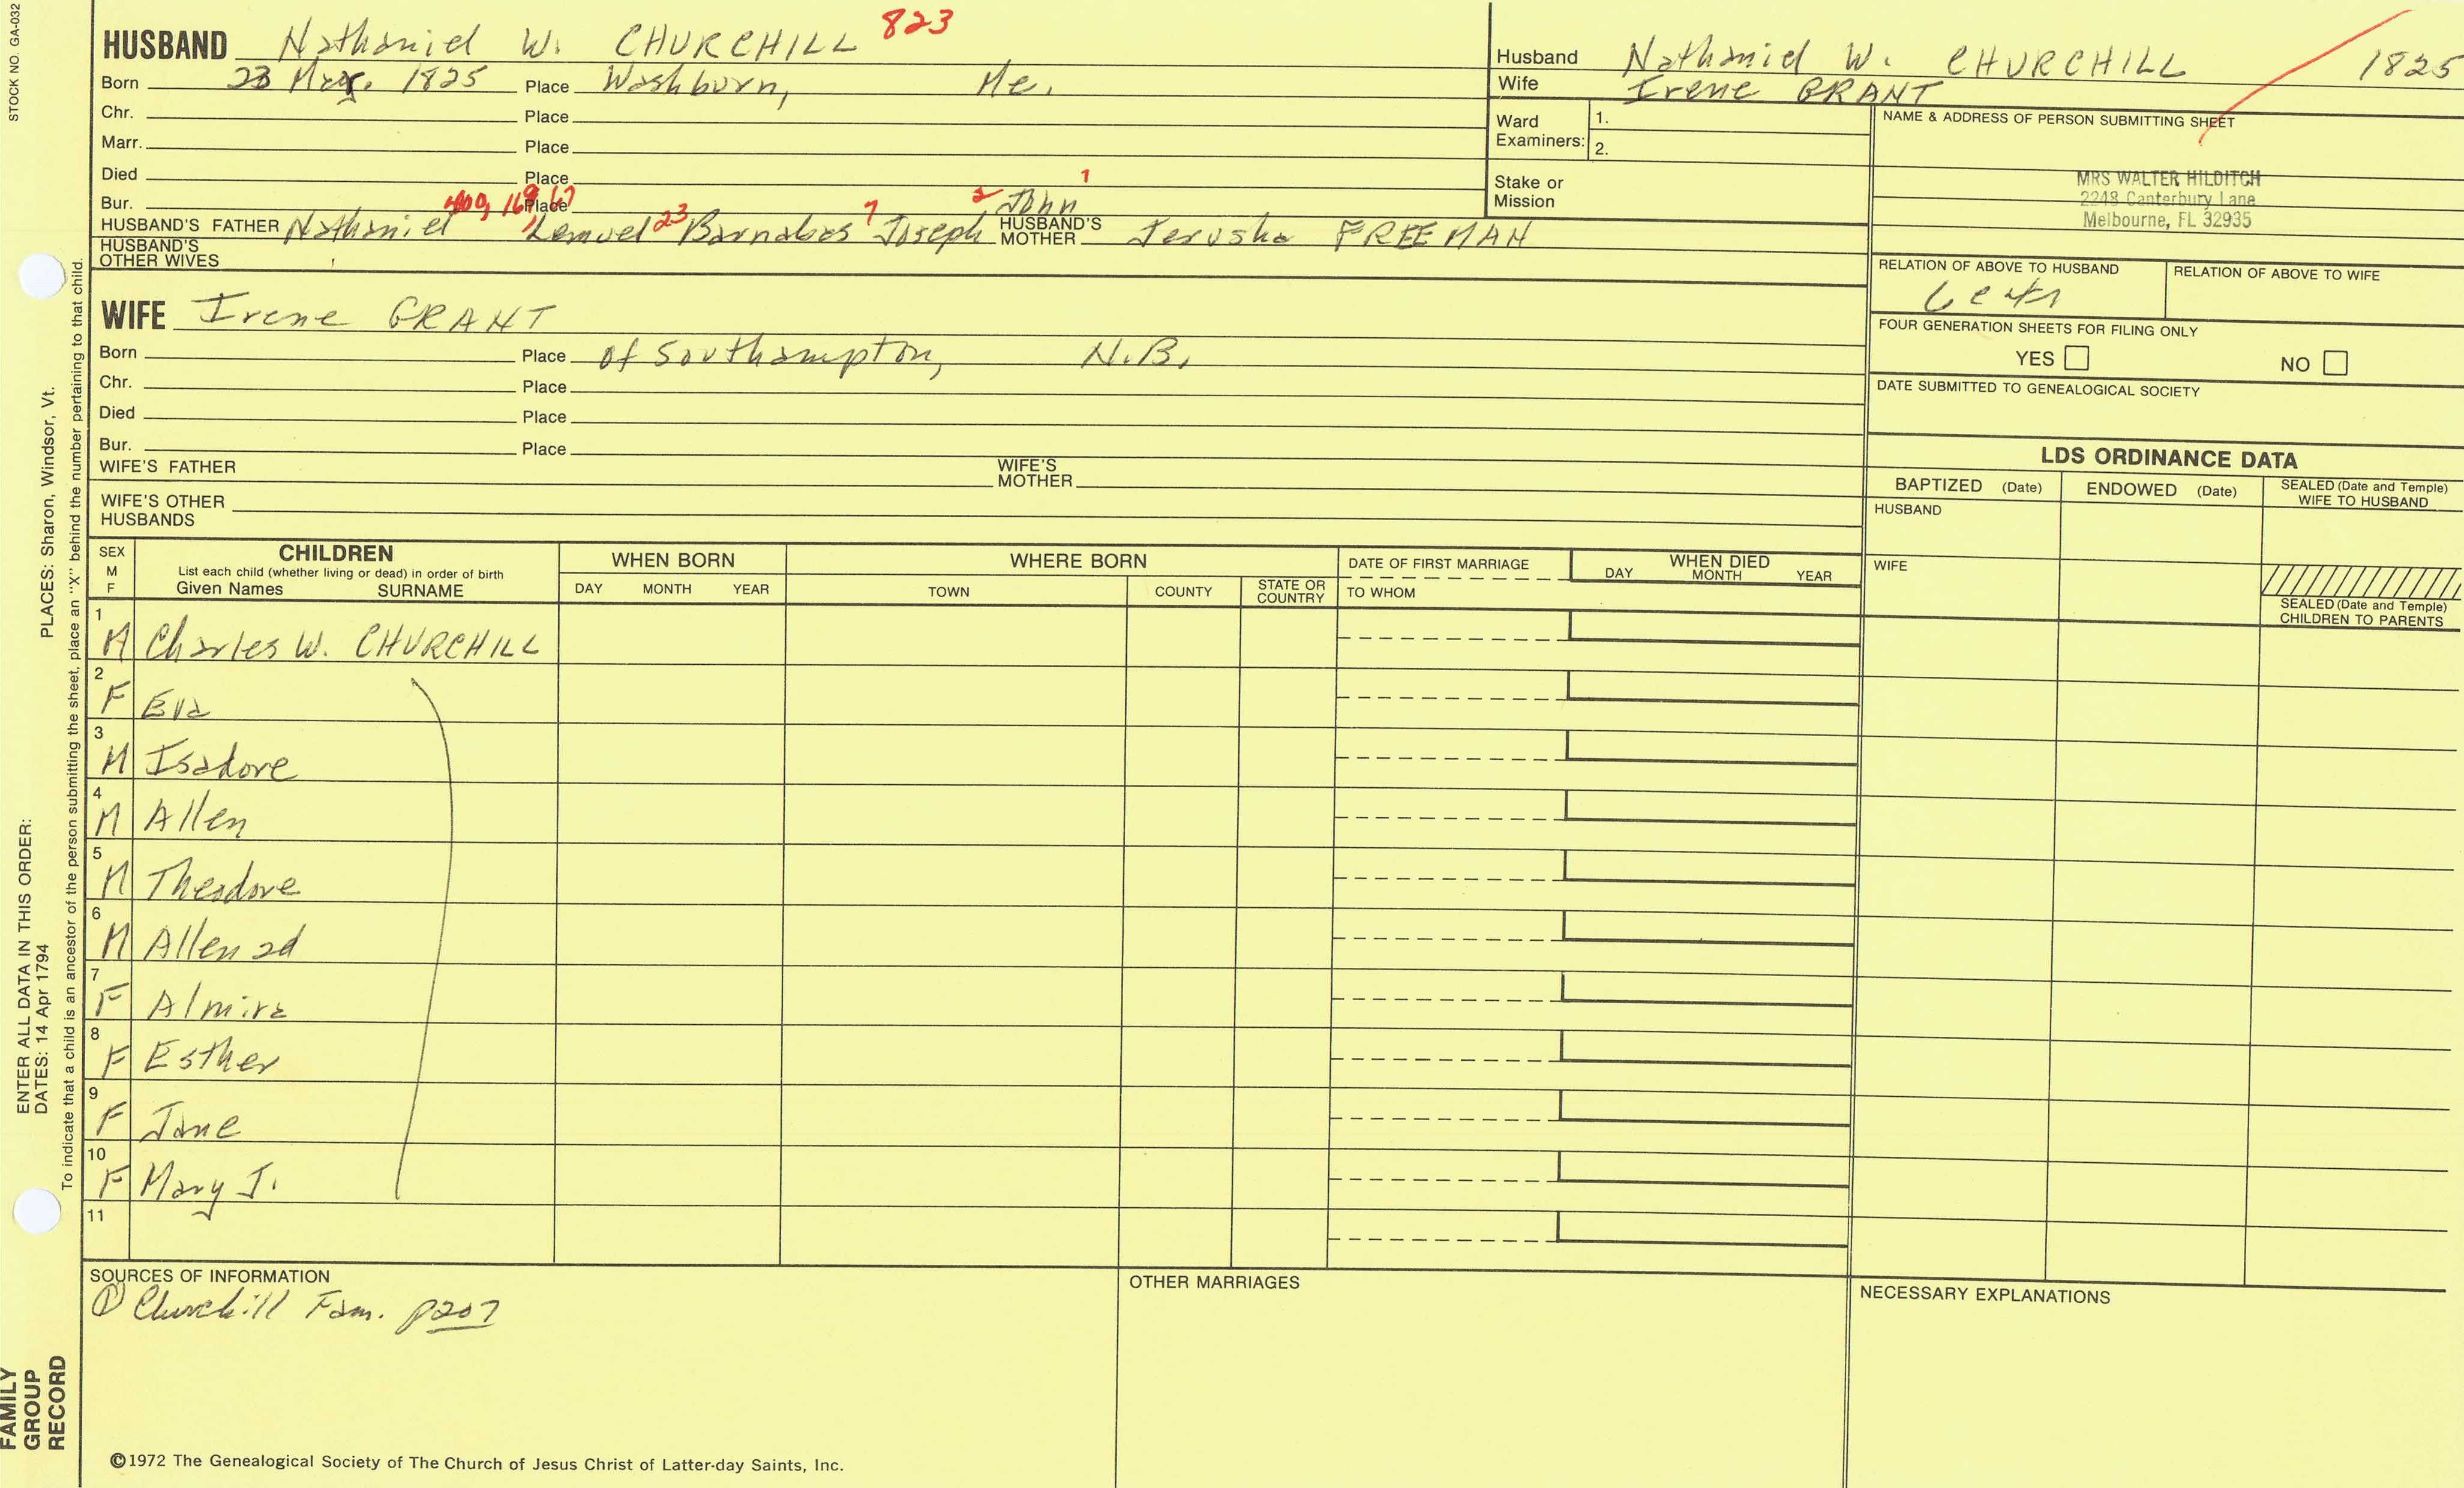 STOCK NO. GA-032
HUSBAND Nathaniel W. CHURCHILL 823
Born 23 1825 Place Washburn, Me.
Chr. Place
Marr. Place
Died Place
Bur. Place
HUSBAND'S FATHER Nathaniel Lemuel 23 Barnabas 7 Joseph 2 John 1 HUSBAND'S MOTHER Jerusha FREEMAN
HUSBAND'S OTHER WIVES
Husband Nathaniel W. CHURCHILL 1825
Wife Irene GRANT
Ward Examiners: 1.
2.
Stake or Mission
NAME & ADDRESS OF PERSON SUBMITTING SHEET
MRS WALTER HILDITCH
2248 Canterbury Lane
Melbourne, FL 32935
RELATION OF ABOVE TO HUSBAND
RELATION OF ABOVE TO WIFE
FOUR GENERATION SHEETS FOR FILING ONLY
YES NO
DATE SUBMITTED TO GENEALOGICAL SOCIETY
WIFE Irene GRANT
Born Place of Southampton, N.B.
Chr. Place
Died Place
Bur. Place
WIFE'S FATHER WIFE'S MOTHER
WIFE'S OTHER HUSBANDS
LDS ORDINANCE DATA
BAPTIZED (Date) ENDOWED (Date) SEALED (Date and Temple) WIFE TO HUSBAND
HUSBAND
WIFE
SEALED (Date and Temple) CHILDREN TO PARENTS
SEX M F
CHILDREN
List each child (whether living or dead) in order of birth
Given Names SURNAME
WHEN BORN
DAY MONTH YEAR
WHERE BORN
TOWN COUNTY STATE OR COUNTRY
DATE OF FIRST MARRIAGE
TO WHOM
WHEN DIED
DAY MONTH YEAR
1 M Charles W. CHURCHILL
2 F Eva
3 M Isadore
4 M Allen
5 M Theadore
6 M Allen 2d
7 F Almira
8 F Esther
9 F Jane
10 F Mary J.
11
SOURCES OF INFORMATION
① Churchill Fam. p207
OTHER MARRIAGES
NECESSARY EXPLANATIONS
©1972 The Genealogical Society of The Church of Jesus Christ of Latter-day Saints, Inc.
ENTER ALL DATA IN THIS ORDER:
DATES: 14 Apr 1794 PLACES: Sharon, Windsor, Vt.
To indicate that a child is an ancestor of the person submitting the sheet, place an "X" behind the number pertaining to that child.
FAMILY
GROUP
RECORD